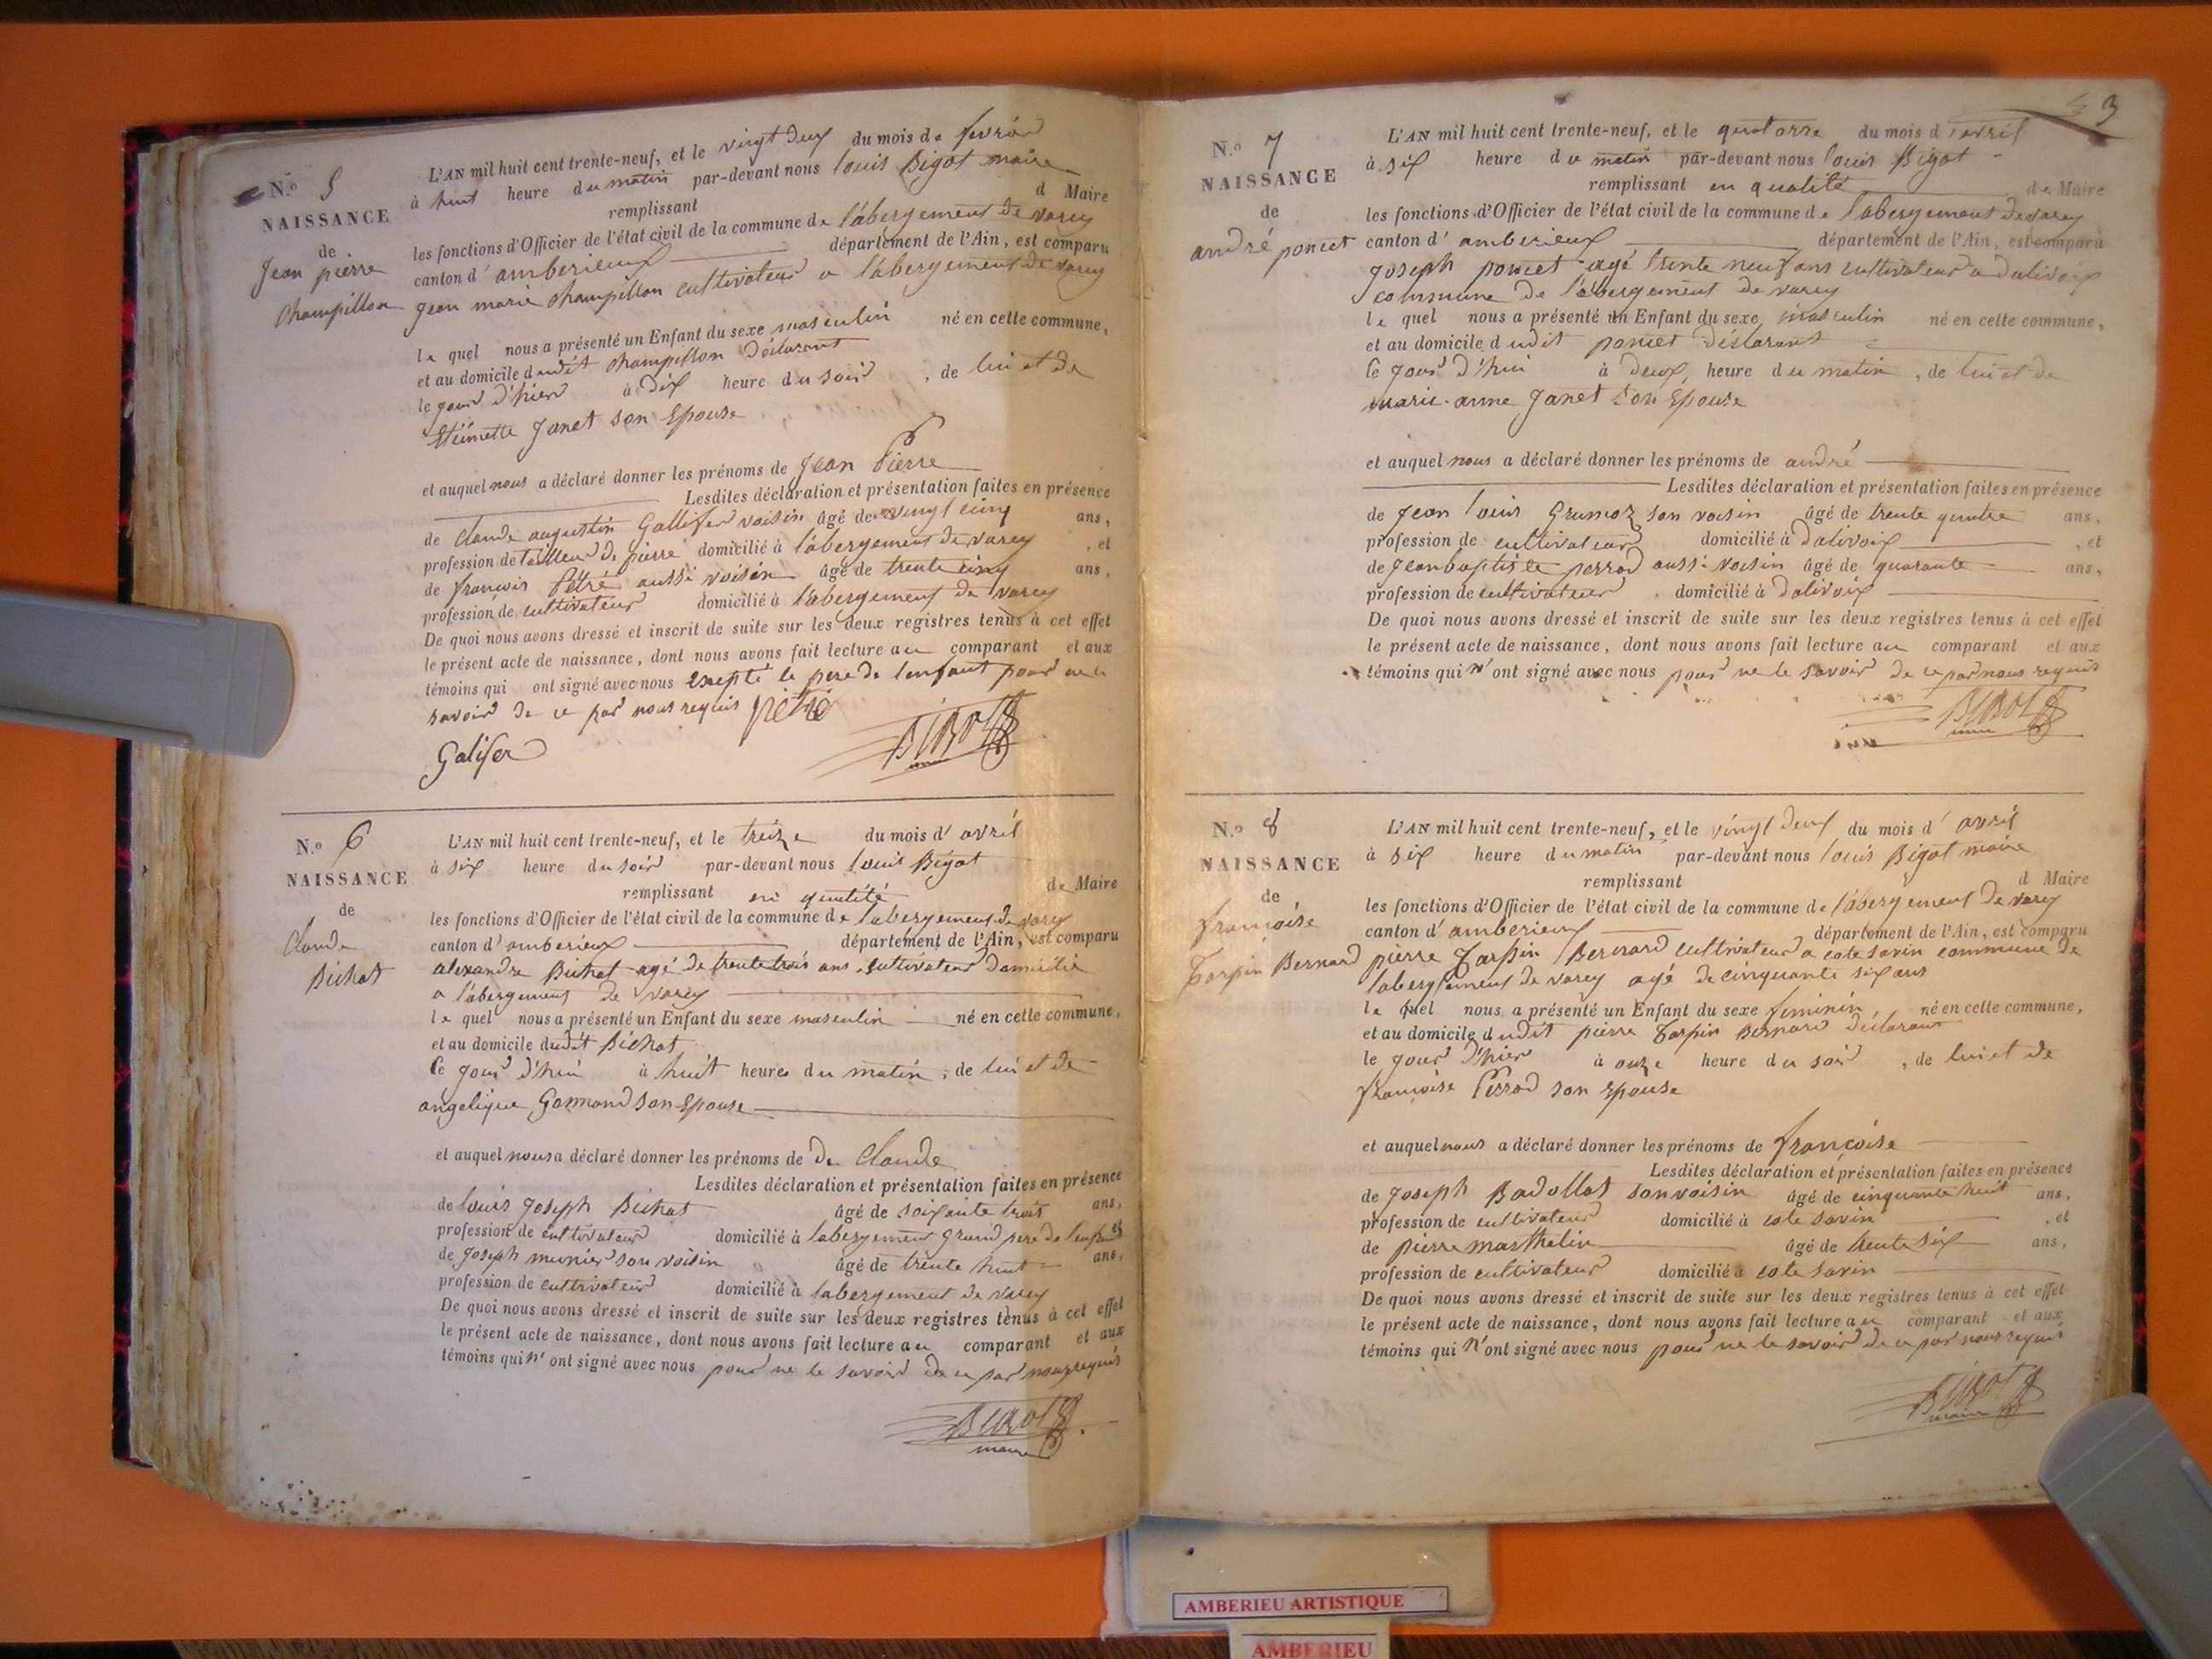 N.o 5
NAISSANCE
de
Jean pierre
Champillon
L'AN mil huit cent trente-neuf, et le vingt deux du mois de fevrier
à huit heure du matin par-devant nous louis Bigot maire
remplissant d Maire
les fonctions d'Officier de l'état civil de la commune de l'abergement de varey
canton d'amberieux département de l'Ain, est comparu
jean marie champillon cultivateur a l'abergement de varey
le quel nous a présenté un Enfant du sexe masculin né en cette commune,
et au domicile dudit champillon déclarant
le jour d'hier à dix heure du soir, de lui et de
Janet son Epouse
et auquel nous a déclaré donner les prénoms de Jean Pierre
Lesdites déclaration et présentation faites en présence
de Claude augustin Gallifer voisin âgé de vingt cinq ans,
profession de tailleur de pierre domicilié à l'abergement de varey, et
de françois Pétré aussi voisin âgé de trente cinq ans,
profession de cultivateur domicilié à l'abergement de varey
De quoi nous avons dressé et inscrit de suite sur les deux registres tenus à cet effet
le présent acte de naissance, dont nous avons fait lecture au comparant et aux
témoins qui ont signé avec nous excepté le pere de l'enfant pour ne le
savoir de ce par nous requis pétré
Galifer BIGOT
N.o 6
NAISSANCE
de
Claude
Bichat
L'AN mil huit cent trente-neuf, et le treize du mois d'avril
à six heure du soir par-devant nous louis Bigot
remplissant en qualité de Maire
les fonctions d'Officier de l'état civil de la commune de l'abergement de varey
canton d'amberieux département de l'Ain, est comparu
alexandre Bichat agé de trente trois ans cultivateur domicilié
a l'abergement de varey
le quel nous a présenté un Enfant du sexe masculin né en cette commune,
et au domicile dudit Bichat
Ce jour d'hui à huit heures du matin, de lui et de
angelique Gormand son Epouse
et auquel nous a déclaré donner les prénoms de De Claude
Lesdites déclaration et présentation faites en présence
de louis Joseph Bichat âgé de soixante trois ans,
profession de cultivateur domicilié à l'abergement grand pere de l'enfant et
de Joseph munier son voisin âgé de trente huit ans,
profession de cultivateur domicilié à l'abergement de varey
De quoi nous avons dressé et inscrit de suite sur les deux registres tenus à cet effet
le présent acte de naissance, dont nous avons fait lecture au comparant et aux
témoins qui n'ont signé avec nous pour ne le savoir de ce par nous requis
BIGOT
maire
3
N.o 7
NAISSANCE
de
andré poncet
L'AN mil huit cent trente-neuf, et le quatorze du mois d'avril
à six heure du matin par-devant nous louis Bigot
remplissant en qualité de Maire
les fonctions d'Officier de l'état civil de la commune de l'abergement de varey
canton d'amberieux département de l'Ain, est comparu
Joseph poncet agé trente neuf ans cultivateur a dalivoix
commune de l'abergement de varey
le quel nous a présenté un Enfant du sexe masculin né en cette commune,
et au domicile dudit poncet déclarant
Ce jour d'hui à deux heure du matin, de lui et de
marie-anne Janet son Epouse
et auquel nous a déclaré donner les prénoms de andré
Lesdites déclaration et présentation faites en présence
de Jean louis Grumoz son voisin âgé de trente quatre ans,
profession de cultivateur domicilié à dalivoix, et
de Jean baptiste perrod aussi voisin âgé de quarante ans,
profession de cultivateur domicilié à dalivoix
De quoi nous avons dressé et inscrit de suite sur les deux registres tenus à cet effet
le présent acte de naissance, dont nous avons fait lecture au comparant et aux
témoins qui n'ont signé avec nous pour ne le savoir de ce par nous requis
BIGOT
N.o 8
NAISSANCE
de
françoise
Tarpin Bernard
L'AN mil huit cent trente-neuf, et le vingt deux du mois d'avril
à six heure du matin par-devant nous louis Bigot maire
remplissant d Maire
les fonctions d'Officier de l'état civil de la commune de l'abergement de varey
canton d'amberieux département de l'Ain, est comparu
pierre Tarpin Bernard cultivateur a cote savin commune de
l'abergement de varey agé de cinquante six ans
le quel nous a présenté un Enfant du sexe feminin né en cette commune,
et au domicile dudit pierre Tarpin Bernard déclarant
le jour d'hier à onze heure du soir, de lui et de
françoise Perrod son Epouse
et auquel nous a déclaré donner les prénoms de françoise
Lesdites déclaration et présentation faites en présence
de Joseph Badollat son voisin âgé de cinquante huit ans,
profession de cultivateur domicilié à cote savin, et
de pierre marthelin âgé de trente six ans,
profession de cultivateur domicilié à cote savin
De quoi nous avons dressé et inscrit de suite sur les deux registres tenus à cet effet
le présent acte de naissance, dont nous avons fait lecture au comparant et aux
témoins qui n'ont signé avec nous pour ne le savoir de ce par nous requis
BIGOT
maire
AMBERIEU ARTISTIQUE
AMBERIEU